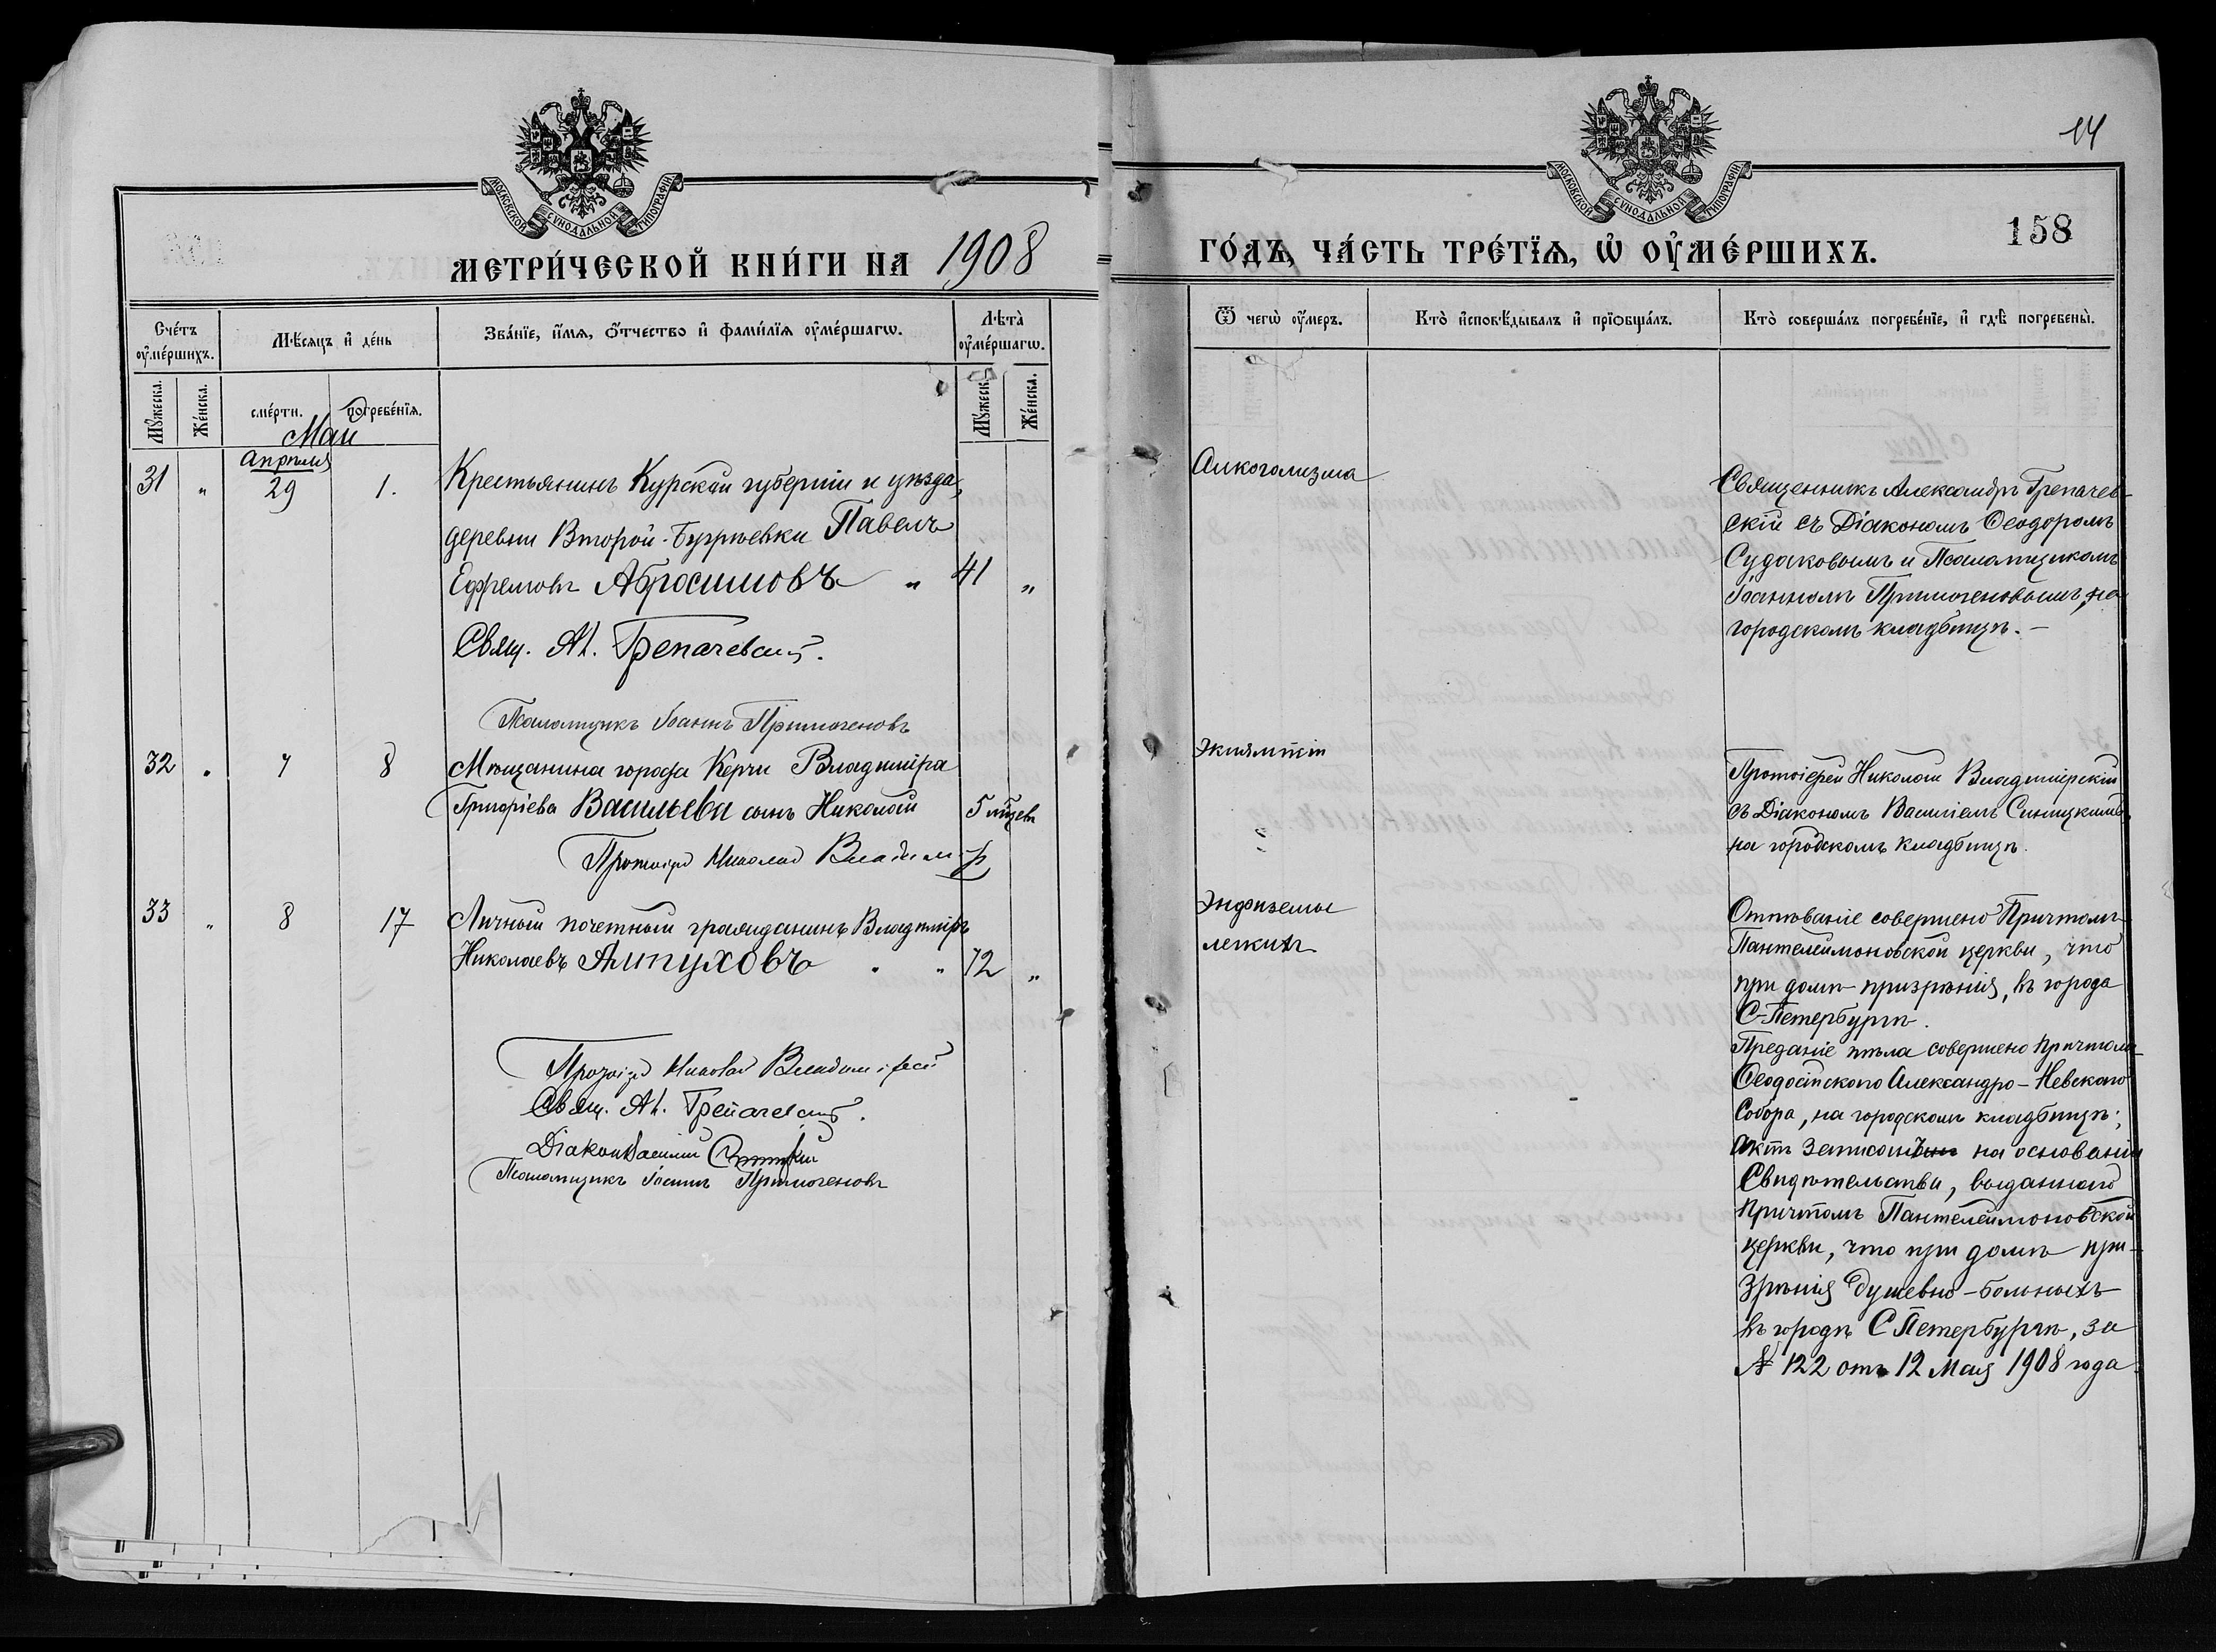 14
158
МОСКОВСКОЙ СѴНОДАЛЬНОЙ ТИПОГРАФІИ
МОСКОВСКОЙ СѴНОДАЛЬНОЙ ТИПОГРАФІИ
МЕТРИ́ЧЕСКОЙ КНИ́ГИ НА 1908
ГО́ДЪ, ЧА́СТЬ ТРЕ́ТЇѦ, Ѡ҆ ОУ҆МЕ́РШИХЪ.
Сче́тъ оу҆ме́ршихъ.
Мꙋ́жеска.
Же́нска.
Мѣ́сѧцъ и҆ де́нь
сме́рти.
погребе́нїѧ.
Зва́нїе, и҆́мѧ, ѻ҆́тчество и҆ фами́лїѧ оу҆ме́ршагѡ.
Лѣ́та оу҆ме́ршагѡ.
Мꙋ́жеск.
Же́нска.
Ѿ чегѡ̀ оу҆́меръ.
Кто̀ и҆сповѣ́дывалъ и҆ прїѡбща́лъ.
Кто̀ соверша́лъ погребе́нїе, и҆ гдѣ̀ погребены̀.
Май
Апрѣля
31 " 29 1.
Крестьянинъ Курской губерніи и уѣзда,
деревни Второй-Бугрѣевки Павелъ
Ефремовъ Абросимовъ " 41 "
Свящ. Ал. Трепачевскій.
Псаломщикъ Іоаннъ Примогеновъ
Алкоголизма
Священникъ Александръ Трепачев-
скій съ Діакономъ Ѳеодоромъ
Судаковымъ и Псаломщикомъ
Іоанномъ Примогеновымъ, на
городскомъ кладбищѣ. –
32 " 7 8
Мѣщанина города Керчи Владиміра
Григоріева Васильева сынъ Николай 5 мѣсяцевъ
Протоіерей Николай Владимір
Эклямпсіи
Протоіерей Николай Владимірскій
съ Діакономъ Василіемъ Синицкимъ,
на городскомъ кладбищѣ.
33 " 8 17
Личный почетный гражданинъ Владиміръ
Николаевъ Алтуховъ " " 72 "
Протоіерей Николай Владимірскій
Свящ. Ал. Трепачевскій.
Діаконъ Василій Синицкій
Псаломщикъ Іоаннъ Примогеновъ
Энфиземы
легкихъ
Отпѣваніе совершено Причтомъ
Пантелеимоновской церкви, что
при домѣ призрѣнія, въ города
С-Петербургѣ.
Преданіе тѣла совершено причтомъ
Ѳеодосійского Александро-Невского
Собора, на городскомъ кладбищѣ;
актъ записанъ на основаніи
Свидѣтельства, выданного
Причтомъ Пантелеимоновской
церкви, что при домѣ при-
зрѣнія душевно-больныхъ
въ городѣ С Петербургѣ, за
№ 122 отъ 12 Мая 1908 года